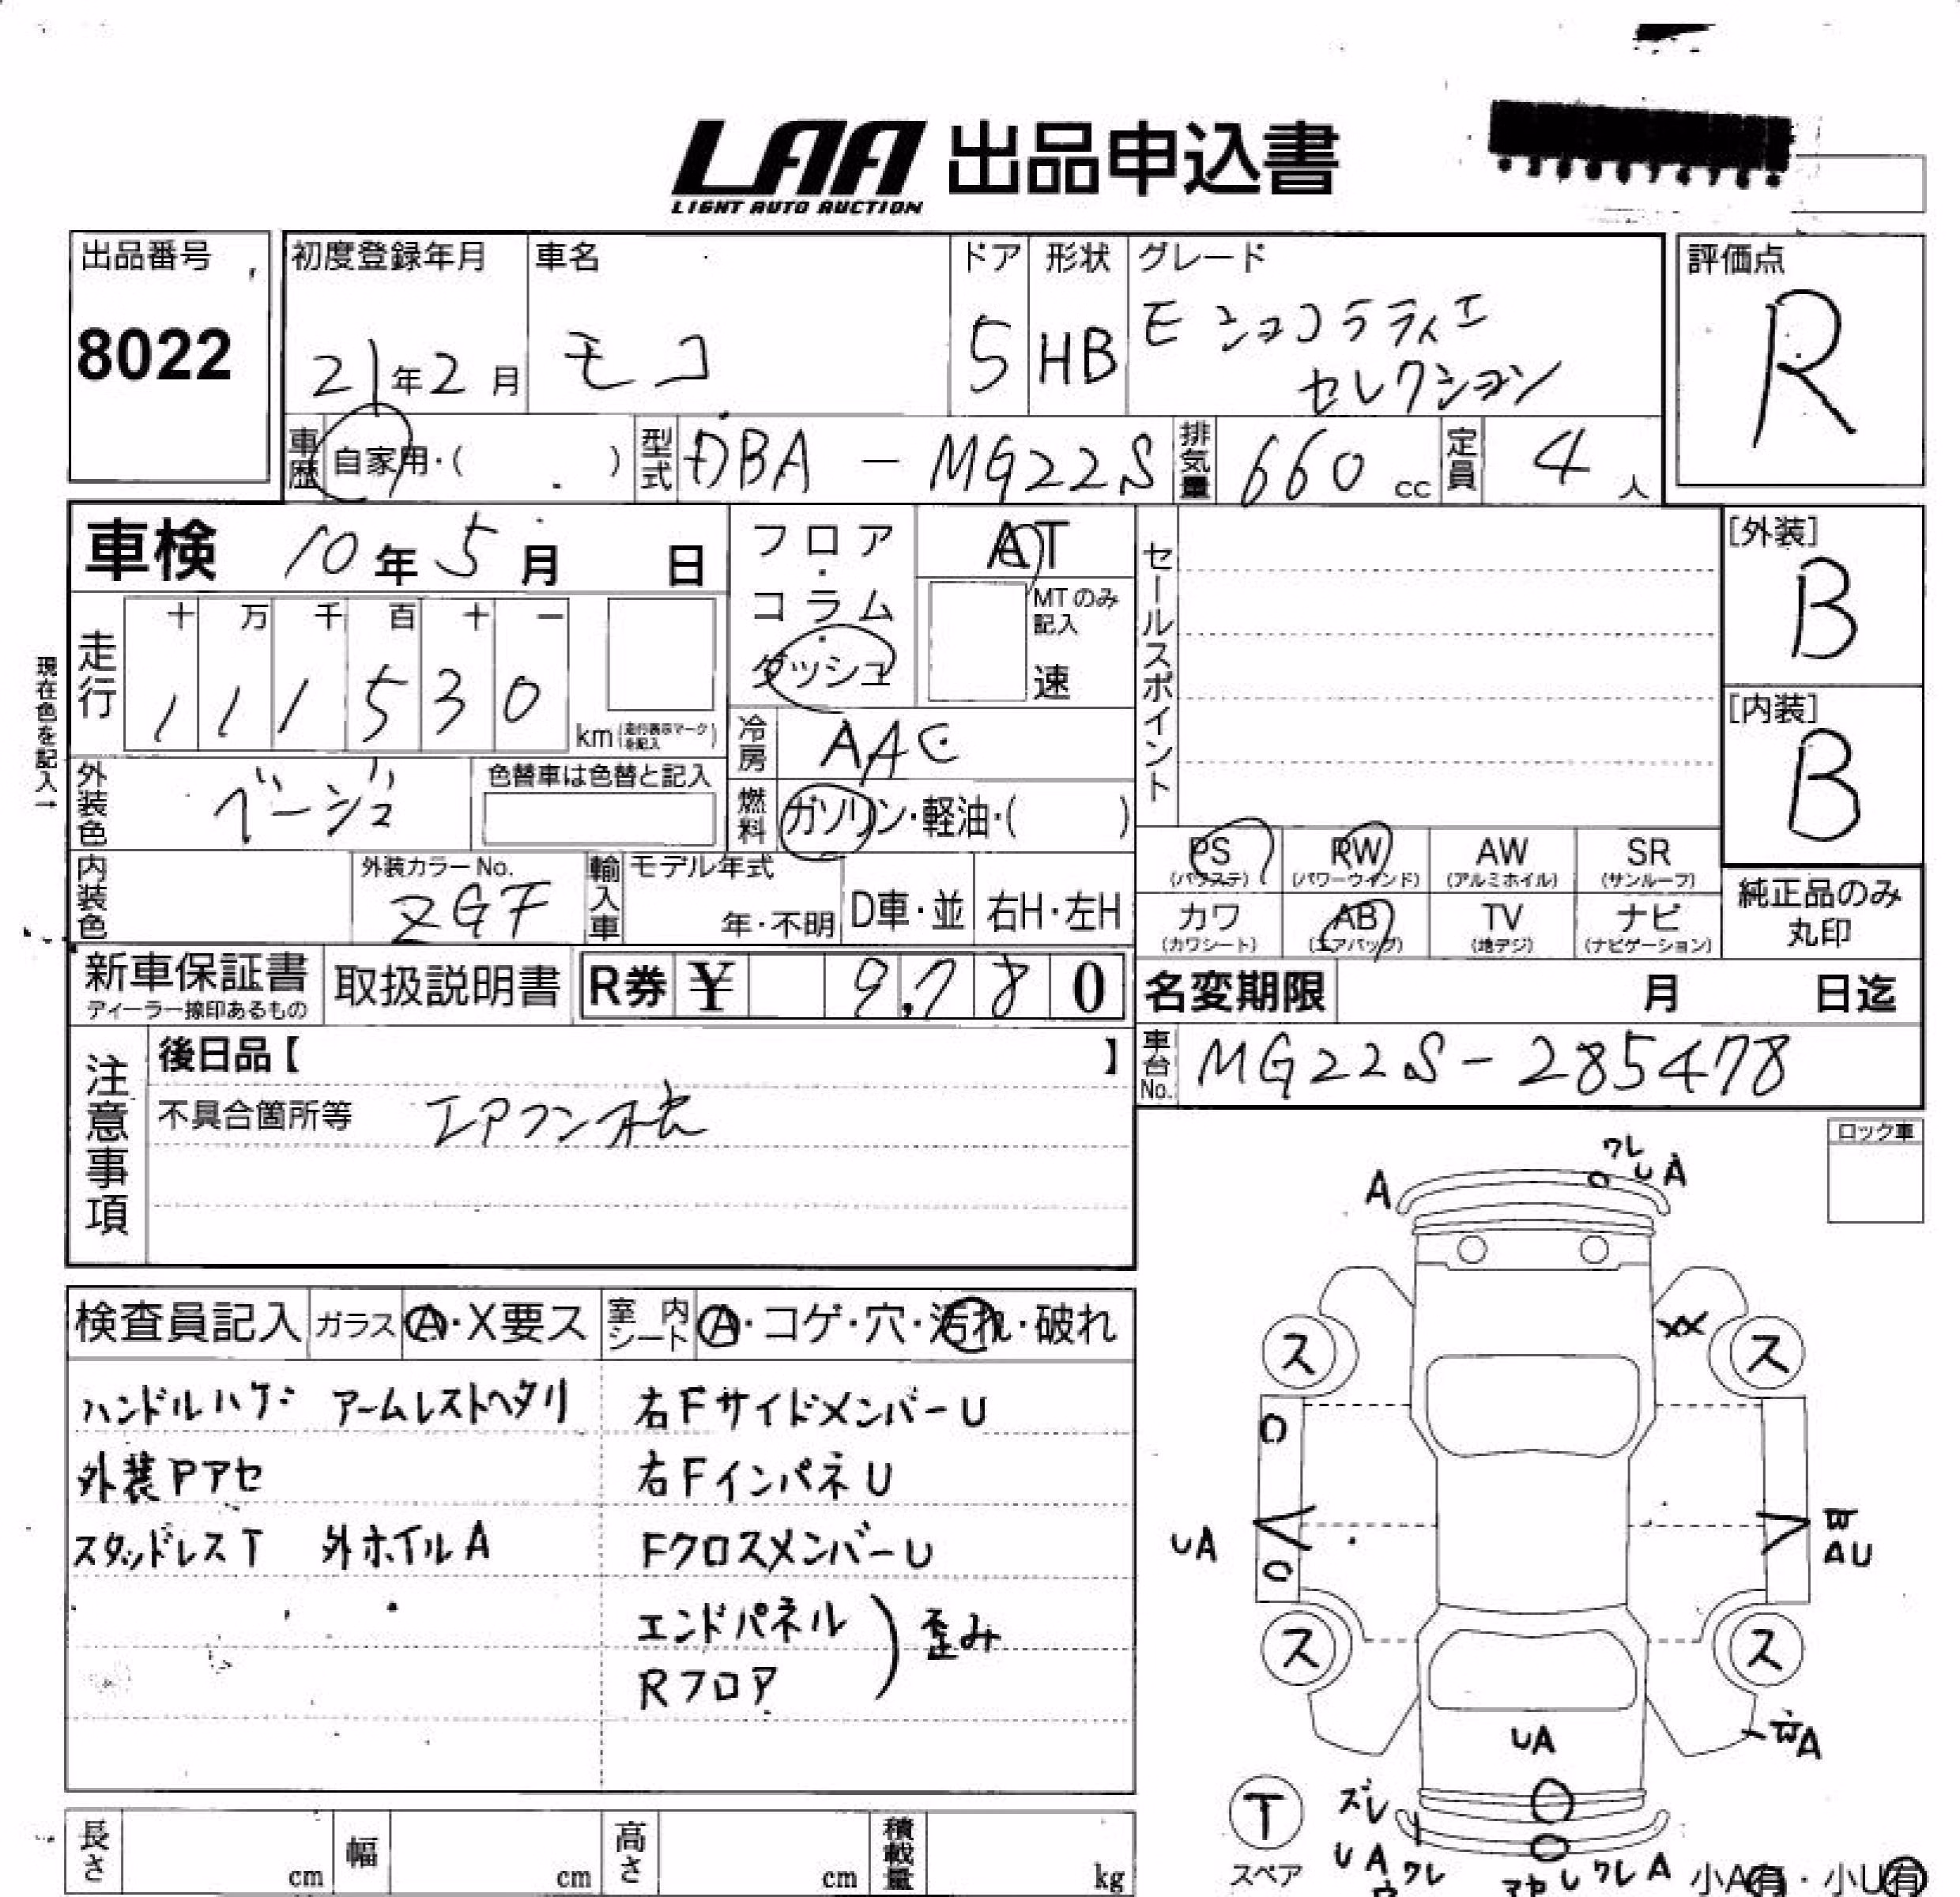 LAA 出品申込書
LIGHT AUTO AUCTION
出品番号
8022
初度登録年月
21年2月
車名
モコ
ドア
5
形状
HB
グレード
E ショコラティエ
セレクション
評価点
R
車歴 自家用・( )
型式 DBA - MG22S
排気量 660 cc
定員 4 人
車検 10年5月 日
フロア・コラム・ダッシュ
AT
MTのみ記入
速
セールスポイント
[外装]
B
[内装]
B
現在色を記入→
走行
十 万 千 百 十 一
1 1 1 5 3 0
km(走行表示マークを記入)
冷房 AAC
外装色 ベージュ
色替車は色替と記入
燃料 ガソリン・軽油・( )
内装色
外装カラーNo.
ZGF
輸入車
モデル年式
年・不明
D車・並
右H・左H
PS
(パワステ)
PW
(パワーウインド)
AW
(アルミホイル)
SR
(サンルーフ)
カワ
(カワシート)
AB
(エアバッグ)
TV
(地デジ)
ナビ
(ナビゲーション)
純正品のみ
丸印
新車保証書
ディーラー捺印あるもの
取扱説明書
R券 ¥ 9,780
名変期限 月 日迄
車台No. MG22S-285478
注意事項
後日品【 】
不具合箇所等 エアコン
ロック車
検査員記入
ガラス A・X要ス
室内シート A・コゲ・穴・汚れ・破れ
ハンドルハゲ アームレストヘタリ
右FサイドメンバーU
外装Pアセ
右FインパネU
スタッドレスT 外ホイルA
FクロスメンバーU
エンドパネル
Rフロア
歪み
ワレ
A
UA
XX
ス
ス
UA
W
AU
ス
ス
UA
WA
T
スペア
ズレ
UA
ワレ
ワレ A
小A有・小U有
長さ cm
幅 cm
高さ cm
積載量 kg